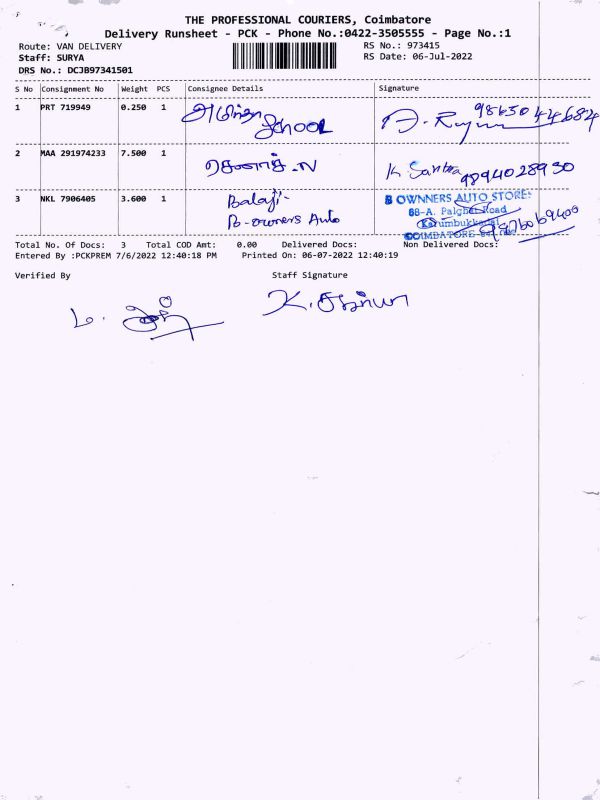 THE PROFESSIONAL COURIERS, Coimbatore
Delivery Runsheet - PCK - Phone No.:0422-3505555 - Page No.:1
Route: VAN DELIVERY
RS No.: 973415
Staff: SURYA
RS Date: 06-Jul-2022
DRS No.: DCJB97341501
S No Consignment No Weight PCS Consignee Details Signature
1 PRT 719949 0.250 1 School
2 MAA 291974233 7.500 1 K. 9894028930
3 NKL 7906405 3.600 1 Balaji
B-owners Auto
B OWNNERS AUTO STORES
68-A, Palghat Road
COIMBATORE
Total No. Of Docs: 3 Total COD Amt: 0.00 Delivered Docs: Non Delivered Docs:
Entered By :PCKPREM 7/6/2022 12:40:18 PM Printed On: 06-07-2022 12:40:19
Verified By Staff Signature
K. சூர்யா